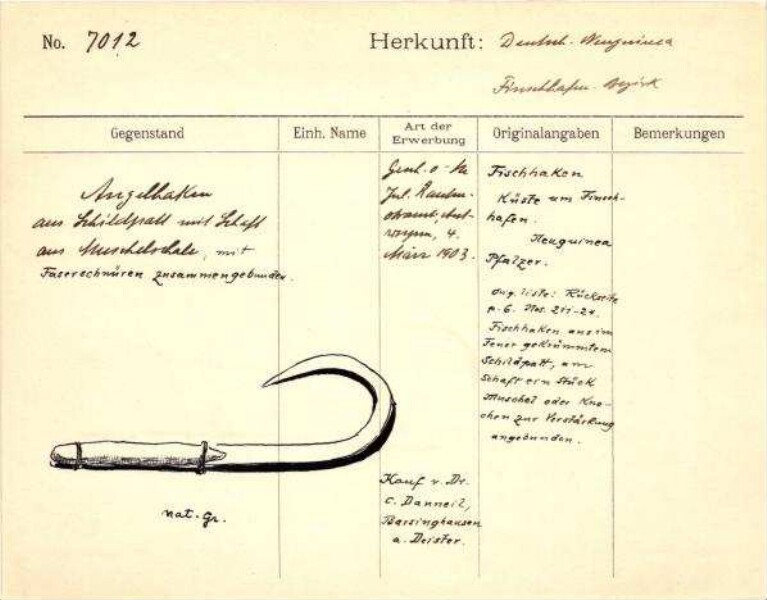 No. 7012
Herkunft: Deutsch-Neuguinea
Finschhafen-Bezirk
Gegenstand
Einh. Name
Art der
Erwerbung
Originalangaben
Bemerkungen
Angelhaken
aus Schildpatt mit Schaft
aus Muschelschale, mit
Faserschnüren zusammengebunden.
März 1903.
Kauf v. Dr.
C. Danneil,
Barsinghausen
a. Deister.
Fischhaken
Küste um Finsch-
hafen.
Neuguinea
Pfalzer.
Orig. liste: Rückseite
p. 6. Nos.
Fischhaken aus im
Feuer gekrümmtem
Schildpatt, am
Schaft ein Stück
Muschel oder Kno-
chen zur Verstärkung
angebunden.
nat. Gr.